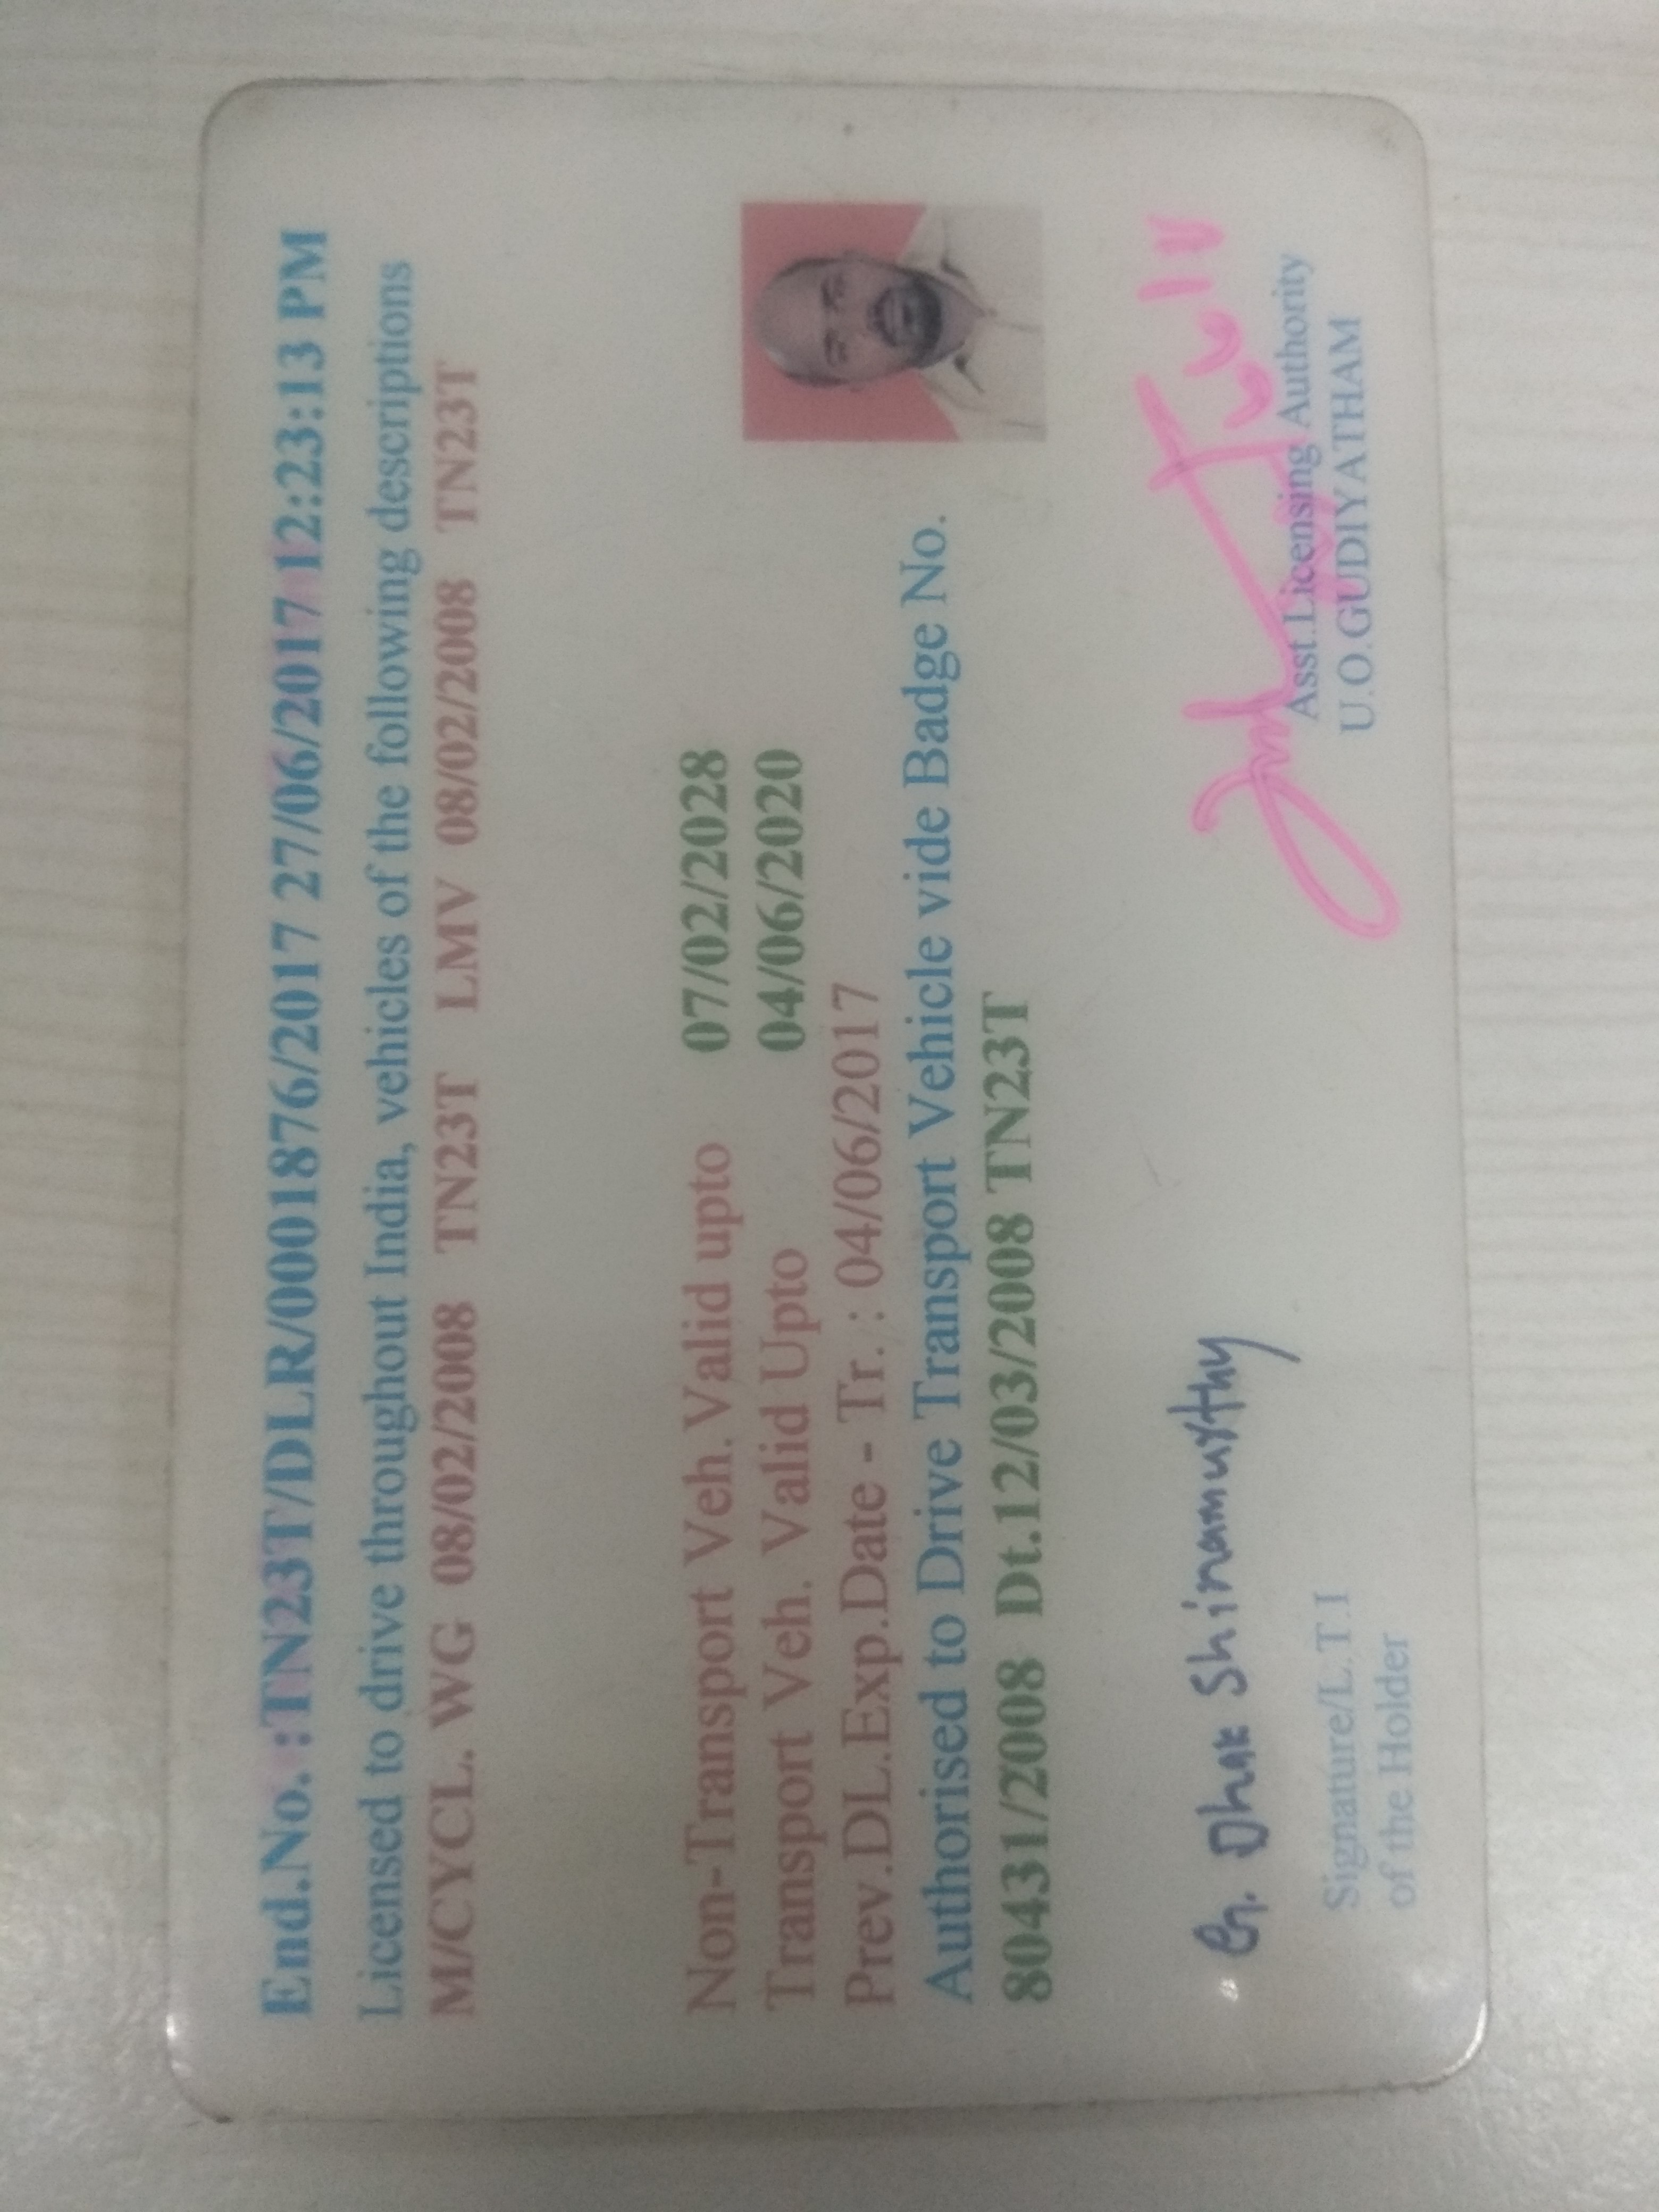 End.No. :TN23T/DLR/0001876/2017 27/06/2017 12:23:13 PM
Licensed to drive throughout India, vehicles of the following descriptions
M/CYCL. WG 08/02/2008 TN23T LMV 08/02/2008 TN23T
Non-Transport Veh. Valid upto 07/02/2028
Transport Veh. Valid Upto 04/06/2020
Prev.DL.Exp.Date - Tr. : 04/06/2017
Authorised to Drive Transport Vehicle vide Badge No.
80431/2008 Dt.12/03/2008 TN23T
Signature/L.T.I
of the Holder
Asst.Licensing Authority
U.O.GUDIYATHAM